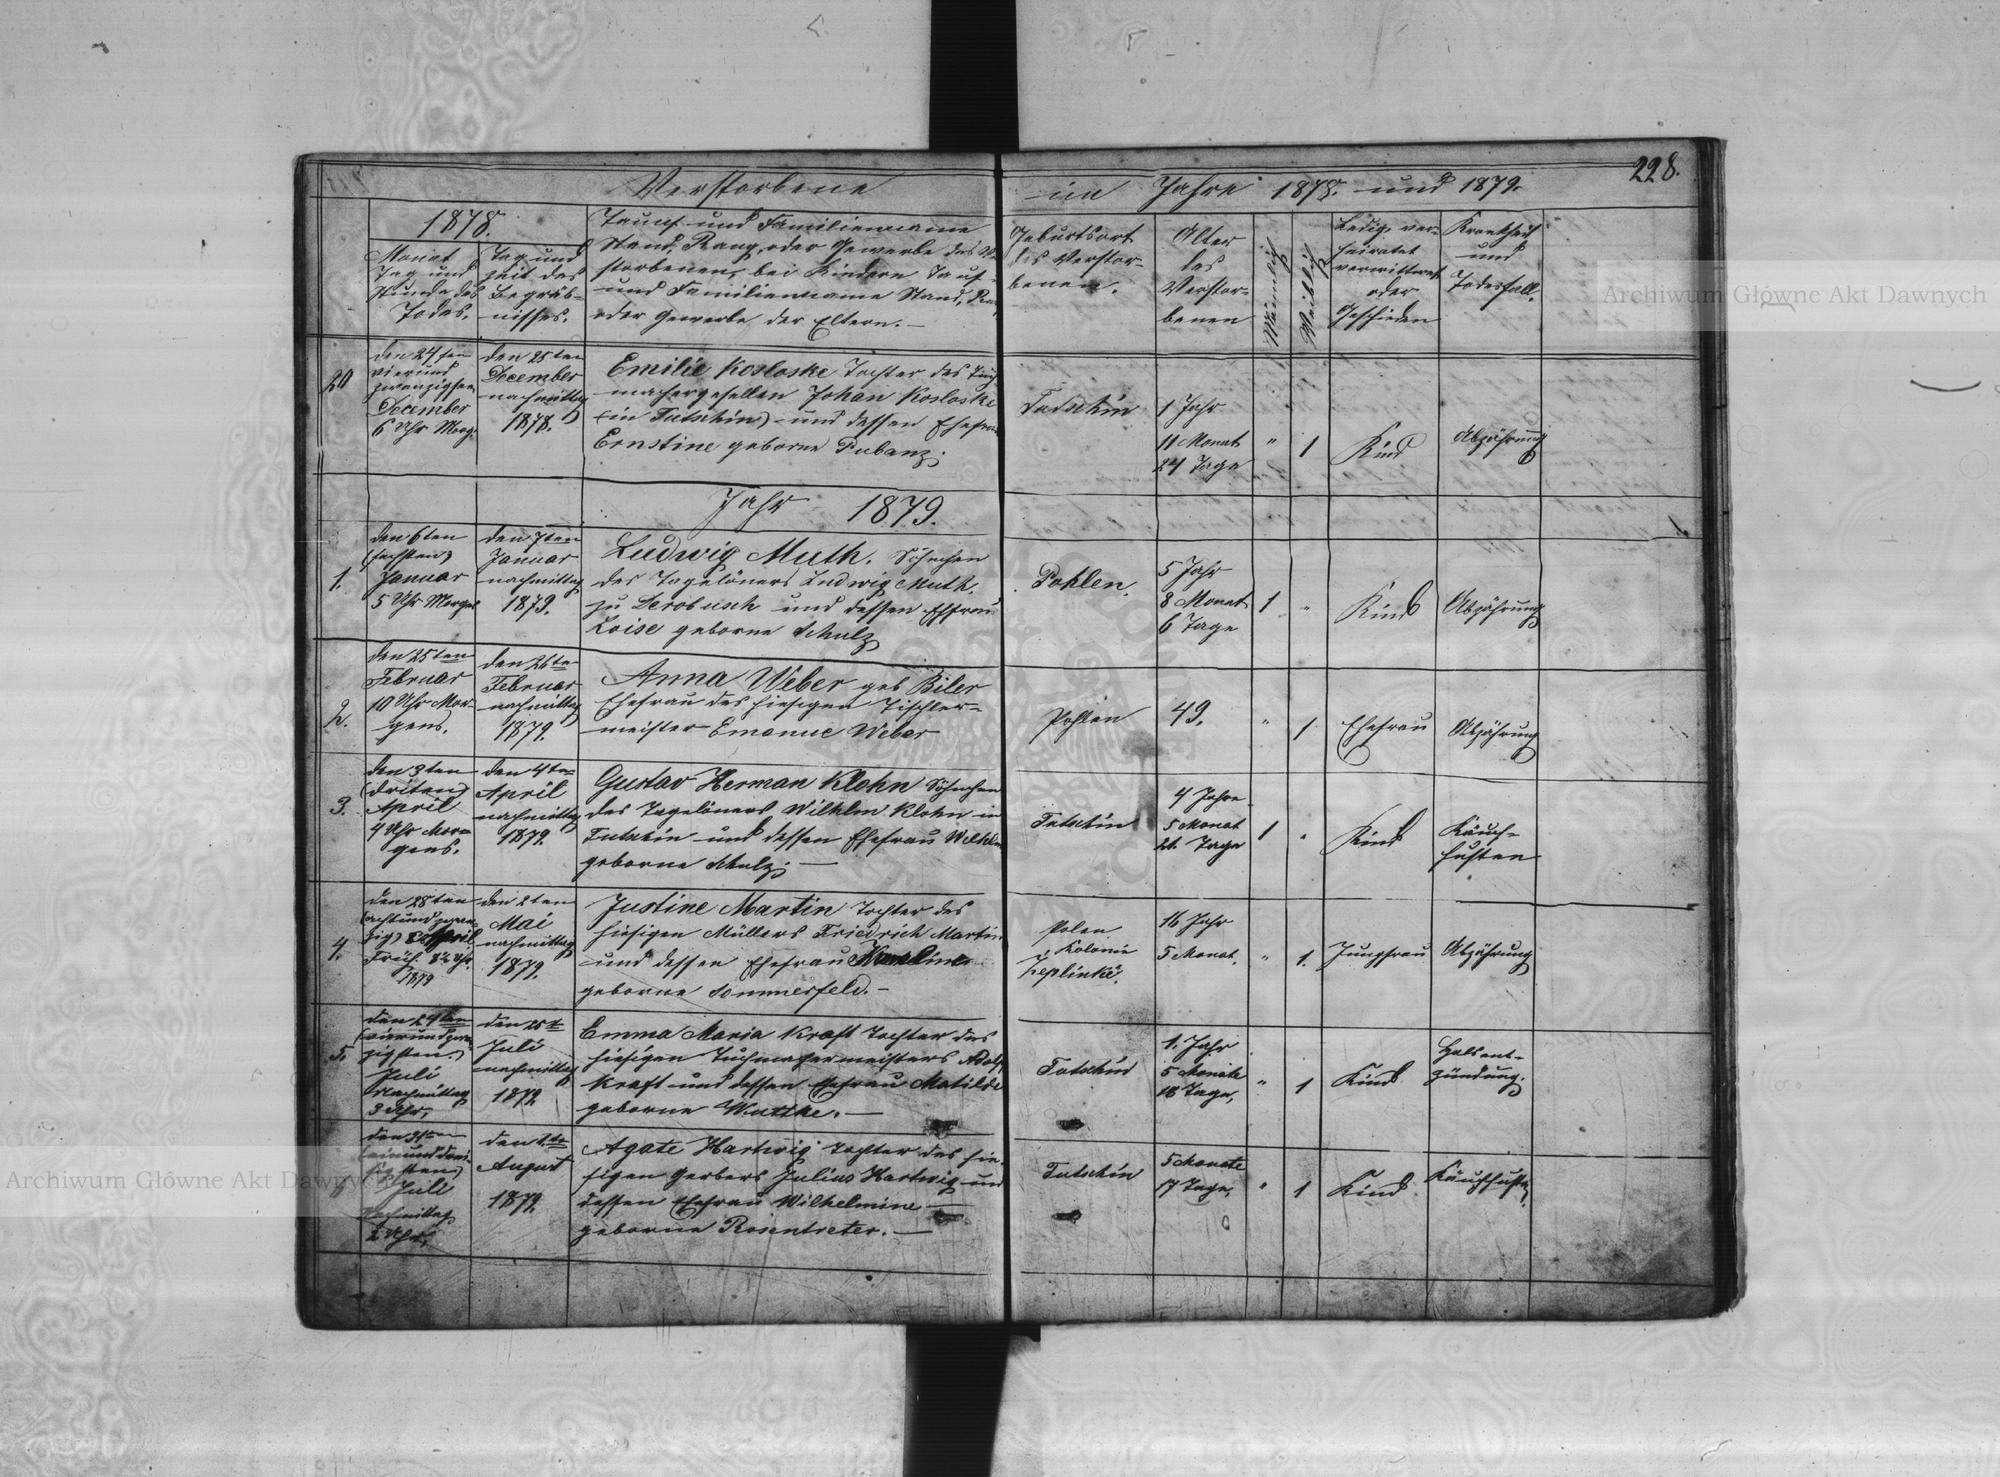 228.
Verstorbene im Jahre 1878. und 1879.
1878.
Monat
Tag und
Stunde des
Todes.
Tag und
Zeit des
Begräb-
nisses.
Tauf- und Familienname
Stand, Rang, oder Gewerbe des Ver
storbenen, bei Kindern Tauf-
und Familienname Stand, Ran
oder Gewerbe der Eltern.—
Geburtsort
des Verstor-
benen.
Alter
des
Verstor-
benen
Männlich
Weiblich
Ledig, ver-
heiratet
verwittwet
oder
Geschieden
Krankheit
und
Todesfall.
20
den 24ten
vierund
zwanzigsten
December
6 Uhr Morg.
den 25ten
December
nachmittag
1878.
Emilie Kosloske Tochter des Tuch
machergesellen Johan Kosloske
(in Tutschin) und dessen Ehefrau
Ernstine geborne Pubanz.
Tutschin
1 Jahr
11 Monat
24 Tage
" 1
Kind
Abzährung
Jahr 1879.
1.
den 6ten
(sechsten)
Januar
5 Uhr Morgen
den 7ten
Januar
nachmittag
1879.
Ludwig Muth. Söhnchen
des Tagelöners Ludwig Muth.
zu Serobusch und dessen Ehefrau
Loise geborne Schulz
Pohlen.
5 Jahr
8 Monat
6 Tage
1 "
Kind
Abzährung
2.
den 25ten
Februar
10 Uhr Mor-
gens.
den 26te
Februar
nachmittag
1879.
Anna Weber geb Biler
Ehefrau des hiesigen Tischler-
meister Emanue Weber
Pohlen
49.
" 1.
Ehefrau
Abzährung
3.
den 3ten
(driten)
April
4 Uhr Mor-
gens.
den 4ten
April
nachmittag
1879.
Gustav Herman Klohn Söhnchen
des Tagelöners Wilhlm Klohn in
Tutschin und dessen Ehefrau Wilhelm
geborne Schulz.—
Tutschin
4 Jahre
5 Monat
21 Tage
1 "
Kind
Käuch-
husten
4.
den 28ten
(achtundzwan
zig) April
Früh. 8½ Uhr
1879
den 2ten
Mai
nachmittag
1879.
Justine Martin Tochter des
hiesigen Müllers Friedrich Martin
und dessen Ehefrau Karoline
geborne Sommerfeld.—
Polen
Kolonie
16 Jahr
5 Monat.
" 1.
Jungfrau
Abzährung
5.
den 24ten
(vierundzwan
zigsten)
Juli
Nachmittag
3 Uhr.
den 25t
Juli
nachmittag
1879
Emma Maria Kraft Tochter des
hiesigen Tuchmachermeisters Adolf
Kraft und dessen Ehefrau Matilde
geborne Wuttke.—
Tutschin
1. Jahr
5 Monate
18 Tage,
" 1
Kind
Halsent-
zündung.
den 31ten
(einunddrei-
sigsten)
Juli
Nachmittag
2 Uhr.
den 2te
August
1879.
Agate Hartwig Tochter des hie-
sigen Gerbers Julius Hartwig und
dessen Ehefrau Wilhelmine—
geborne Rosentreter.—
Tutschin
5 Monate
17 Tage,
" 1
Kind
Käuchhust
Archiwum Główne Akt Dawnych
Archiwum Główne Akt Dawnych